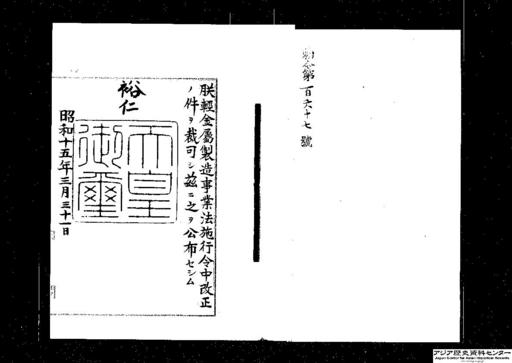 勅令第百六十七號
朕輕金屬製造事業法施行令中改正
ノ件ヲ裁可シ茲ニ之ヲ公布セシム
裕仁
天皇御璽
昭和十五年三月三十一日
アジア歴史資料センター
Japan Center for Asian Historical Records